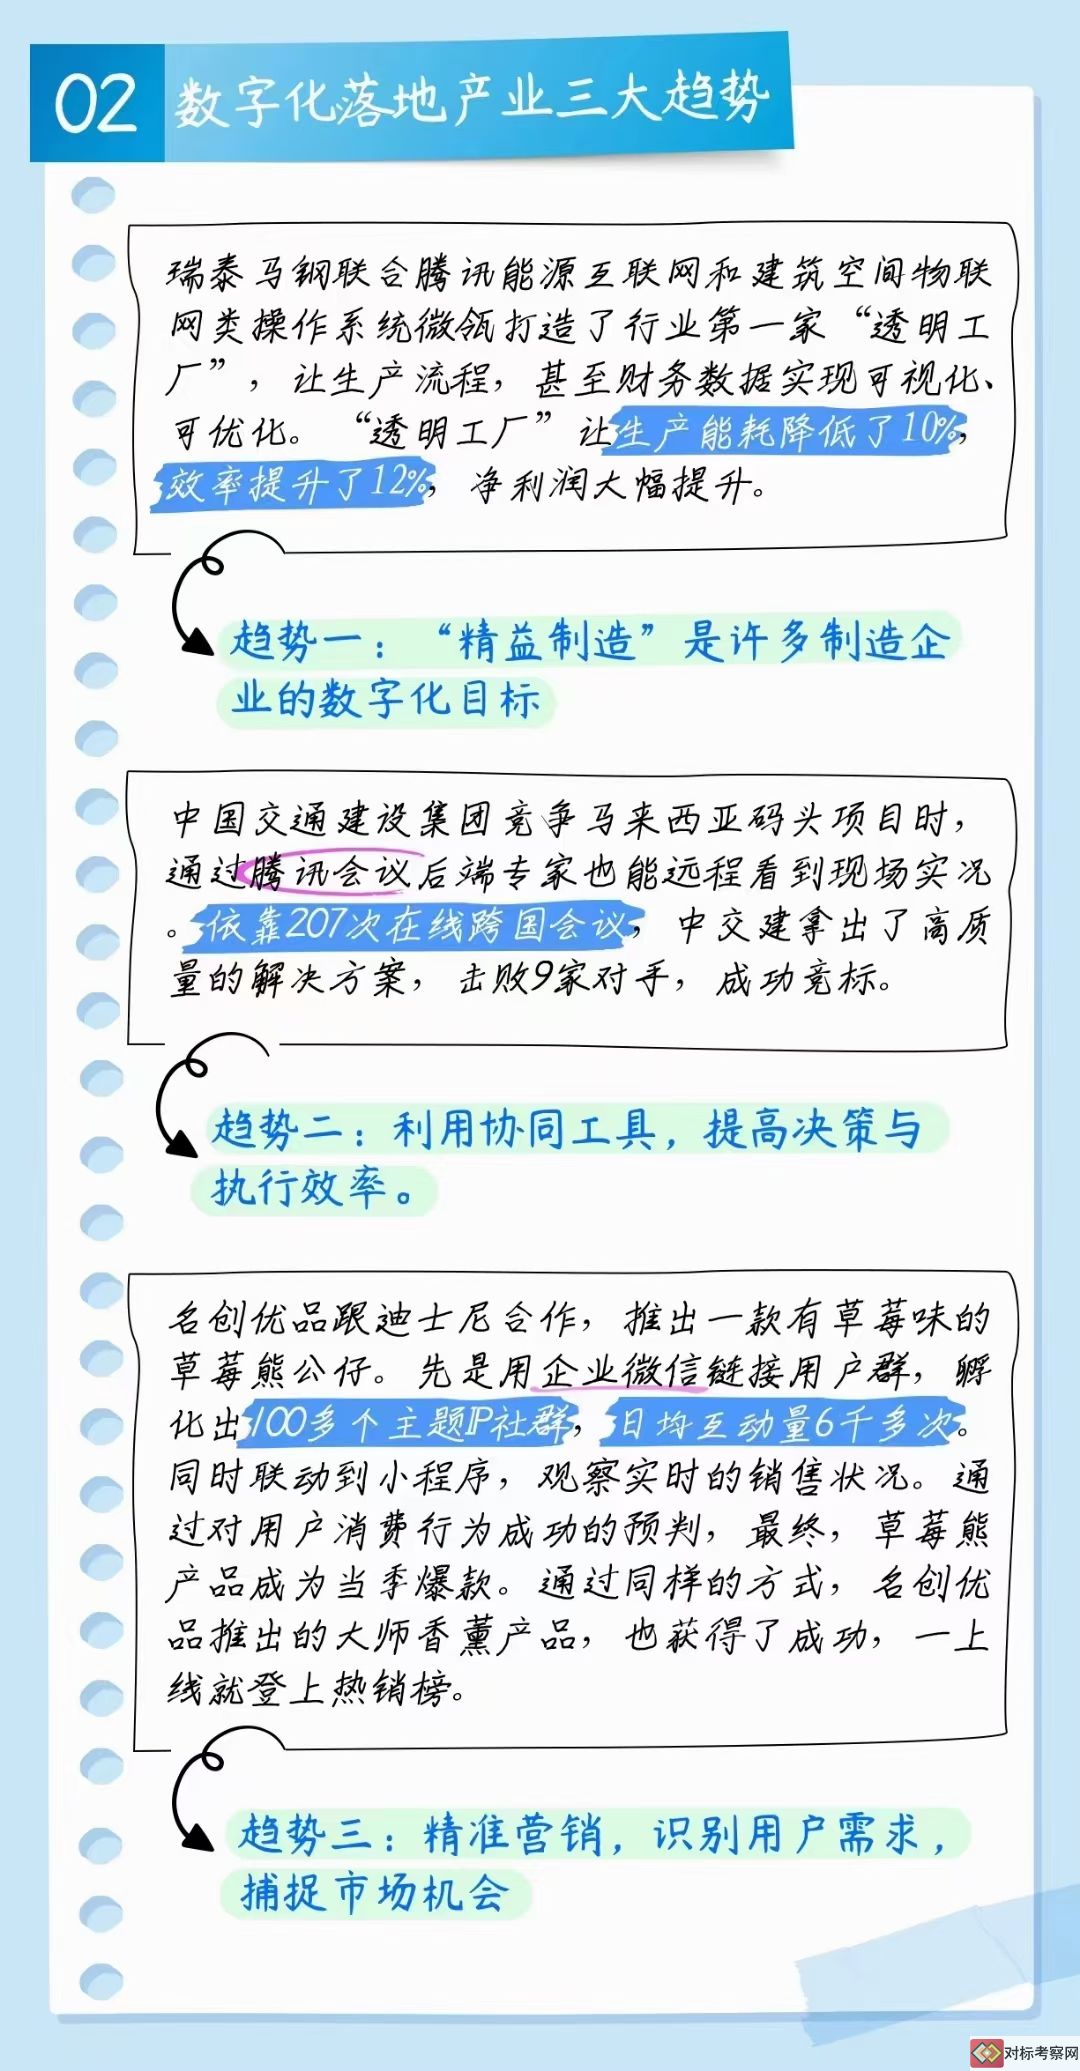 02 数字化落地产业三大趋势
瑞泰马钢联合腾讯能源互联网和建筑空间物联
网类操作系统微瓴打造了行业第一家“透明工
厂”，让生产流程，甚至财务数据实现可视化、
可优化。“透明工厂”让生产能耗降低了10%，
效率提升了12%，净利润大幅提升。
趋势一：“精益制造”是许多制造企
业的数字化目标
中国交通建设集团竞争马来西亚码头项目时，
通过腾讯会议后端专家也能远程看到现场实况
。依靠207次在线跨国会议，中交建拿出了高质
量的解决方案，击败9家对手，成功竞标。
趋势二：利用协同工具，提高决策与
执行效率。
名创优品跟迪士尼合作，推出一款有草莓味的
草莓熊公仔。先是用企业微信链接用户群，孵
化出100多个主题IP社群，日均互动量6千多次。
同时联动到小程序，观察实时的销售状况。通
过对用户消费行为成功的预判，最终，草莓熊
产品成为当季爆款。通过同样的方式，名创优
品推出的大师香薰产品，也获得了成功，一上
线就登上热销榜。
趋势三：精准营销，识别用户需求，
捕捉市场机会
对标考察网